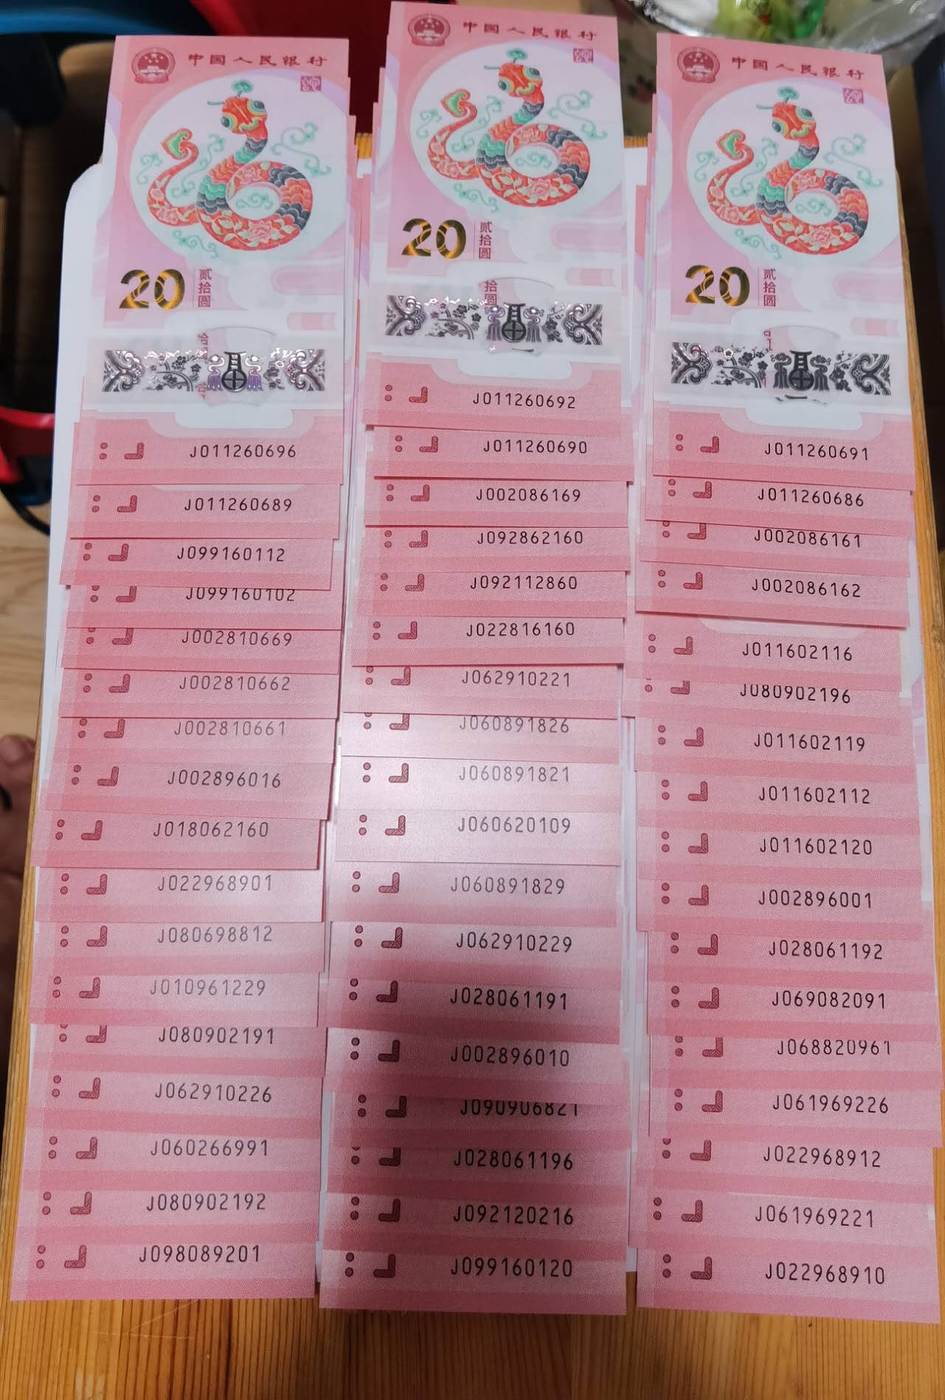 中国人民银行
20
贰拾圆
J011260696
J011260689
J099160112
J099160102
J002810669
J002810662
J002810661
J002896016
J018062160
J022968901
J080698812
J010961229
J080902191
J062910226
J060266991
J080902192
J098089201
中国人民银行
20
贰拾圆
J011260692
J011260690
J002086169
J092862160
J092112860
J022816160
J062910221
J060891826
J060891821
J060620109
J060891829
J062910229
J028061191
J002896010
J090906821
J028061196
J092120216
J099160120
中国人民银行
20
贰拾圆
J011260691
J011260686
J002086161
J002086162
J011602116
J080902196
J011602119
J011602112
J011602120
J002896001
J028061192
J069082091
J068820961
J061969226
J022968912
J061969221
J022968910